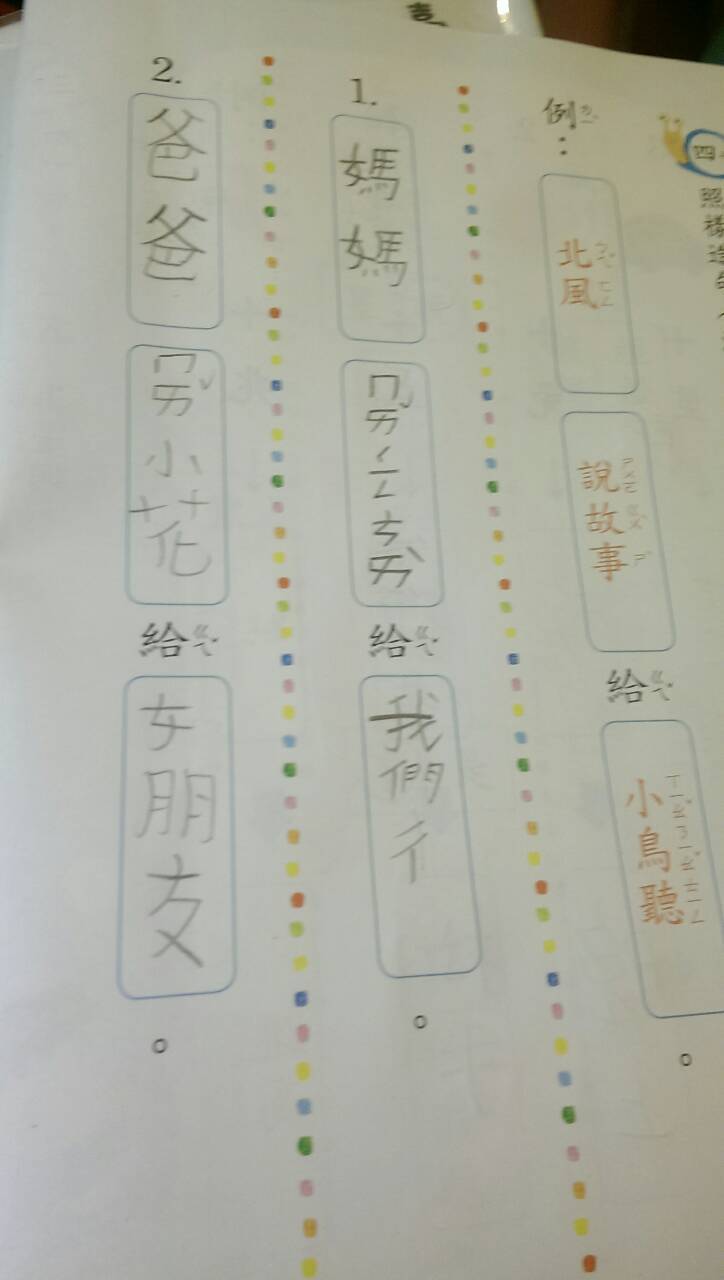 四
照樣造
例：
北風
說故事
給
小鳥聽
。
1.
媽媽
ㄇㄞˇㄑㄧㄥㄘㄞˋ
給
我們ㄔ
。
2.
爸爸
ㄇㄞˇ小花
給
女朋友
。